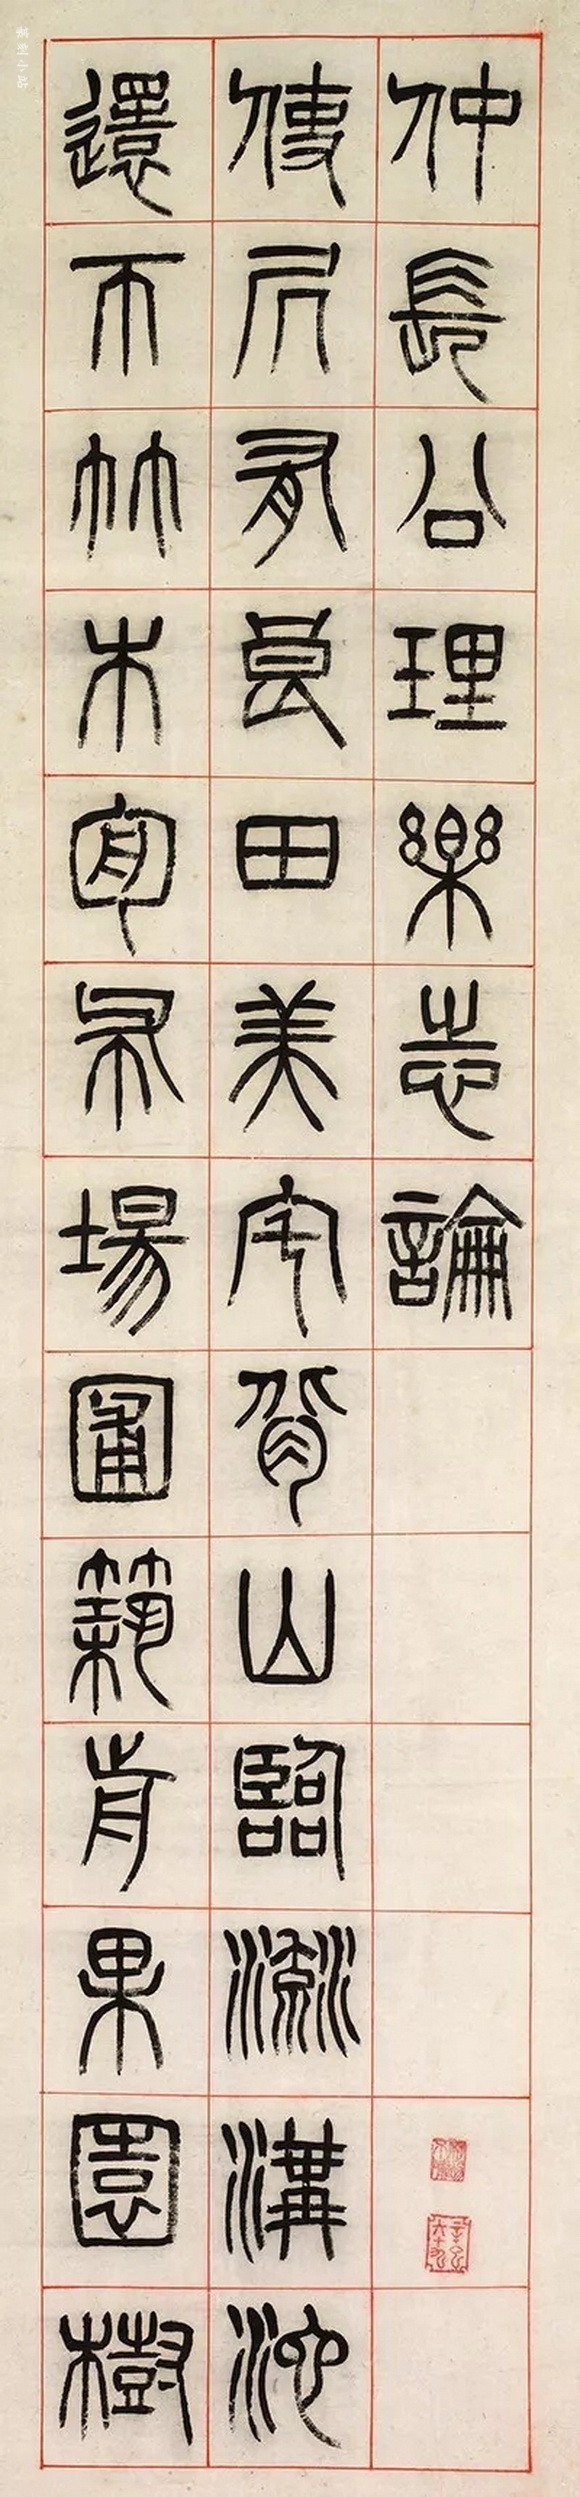 仲長公理樂志論
使凥有良田美宅背山臨流溝池
還帀竹木周布場圃築前果園樹
篆刻小站